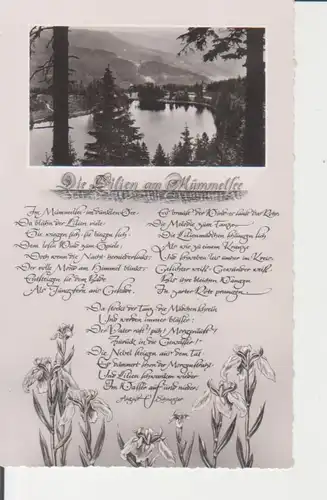 Die Lilien am Mummelsee
Im Mummelsee, im dunklen See
Da blühn der Lilien viele
Sie wiegen sich, sie biegen sich
Dem losen Wind zum Spiele;
Doch wenn die Nacht herniedersinkt
Der volle Mond am Himmel blinkt
Entsteigen sie dem Bade
Als Jungfern ans Gestade.
Es braust der Wind, es saust das Rohr
Die Melodie zum Tanze
Die Lilienmädchen schlingen sich
Als wie zu einem Kranze
Und schweben leis umher im Kreis,
Gesichter weiß, Gewänder weiß
Bis ihre bleichen Wangen
In zarter Röte prangen.
Da stockt der Tanz, die Mädchen schrein
Und werden immer bläßer:
Der Vater ruft, putz! Morgenluft!
Zurück in die Gewässer!
Die Nebel steigen aus dem Tal
Es dämmert schon der Morgenstrahl
Und Lilien schwanken wieder
Im Wasser auf und nieder.
August Schnezler